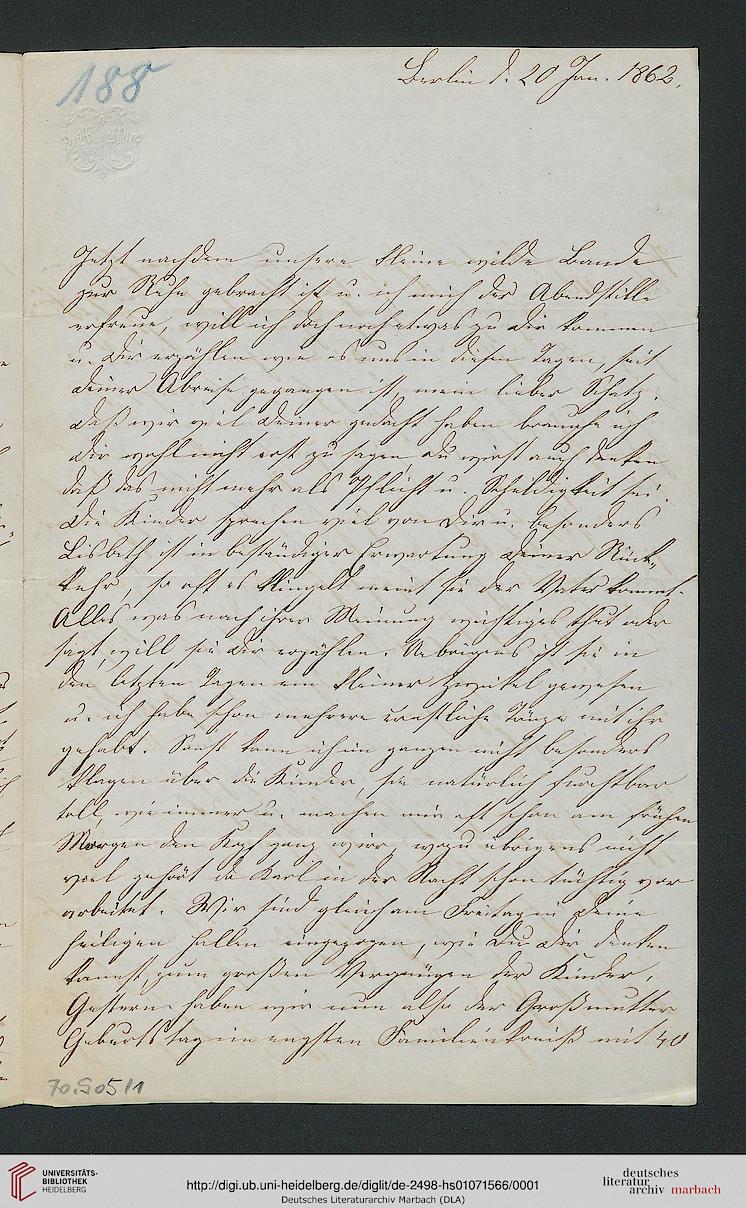 188
Berlin d. 20 Jan. 1862.
Jetzt nachdem unsere kleine wilde Bande
zur Ruhe gebracht ist u. ich mich der Abendstille
erfreue, will ich doch noch etwas zu Dir kommen
u. Dir erzählen wie es uns in diesen Tagen, seit
Deiner Abreise gegangen ist, mein lieber Schatz.
Daß wir viel Deiner gedacht haben brauche ich
Dir wohl nicht erst zu sagen, Du wirst auch denken
daß das nicht mehr als Pflicht u. Schuldigkeit sei.
Die Kinder sprechen viel von Dir u. besonders
Lisbeth ist in beständiger Erwartung Deiner Rück-
kehr, so oft es klingelt meint sie der Vater kommt.
Alles was nach ihrer Meinung wichtiges thut oder
sagt, will sie Dir erzählen. Uebrigens ist sie in
den letzten Tagen ein kleiner gewesen
u. ich habe schon mehrere ernstliche Tänze mit ihr
gehabt. Sonst kann ich im ganzen nicht besonders
klagen über die Kinder, sie natürlich furchtbar
toll, wie immer u. machen mir oft schon am frühen
Morgen den Kopf ganz wirr, wozu übrigens nicht
viel gehört da Karl in der Nacht schon tüchtig vor
arbeitet. Wir sind gleich am Freitag in Deine
heiligen Hallen eingezogen, wie Du Dir denken
kannst, zum großen Vergnügen der Kinder.
Gestern haben wir nun also der Großmutter
Geburtstag im engsten Familienkreiß mit 40
70.505/1
UNIVERSITÄTS-
BIBLIOTHEK
HEIDELBERG
http://digi.ub.uni-heidelberg.de/diglit/de-2498-hs01071566/0001
Deutsches Literaturarchiv Marbach (DLA)
deutsches
literatur
archiv marbach